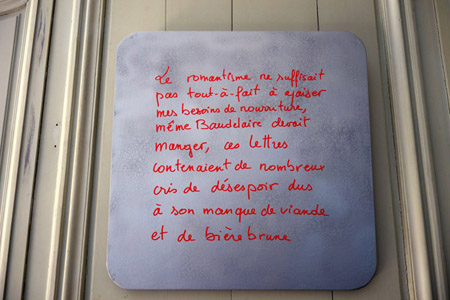 Le romantisme ne suffisait
pas tout-à-fait à apaiser
mes besoins de nourriture,
même Baudelaire devait
manger, ces lettres
contenaient de nombreux
cris de désespoir dus
à son manque de viande
et de bière brune